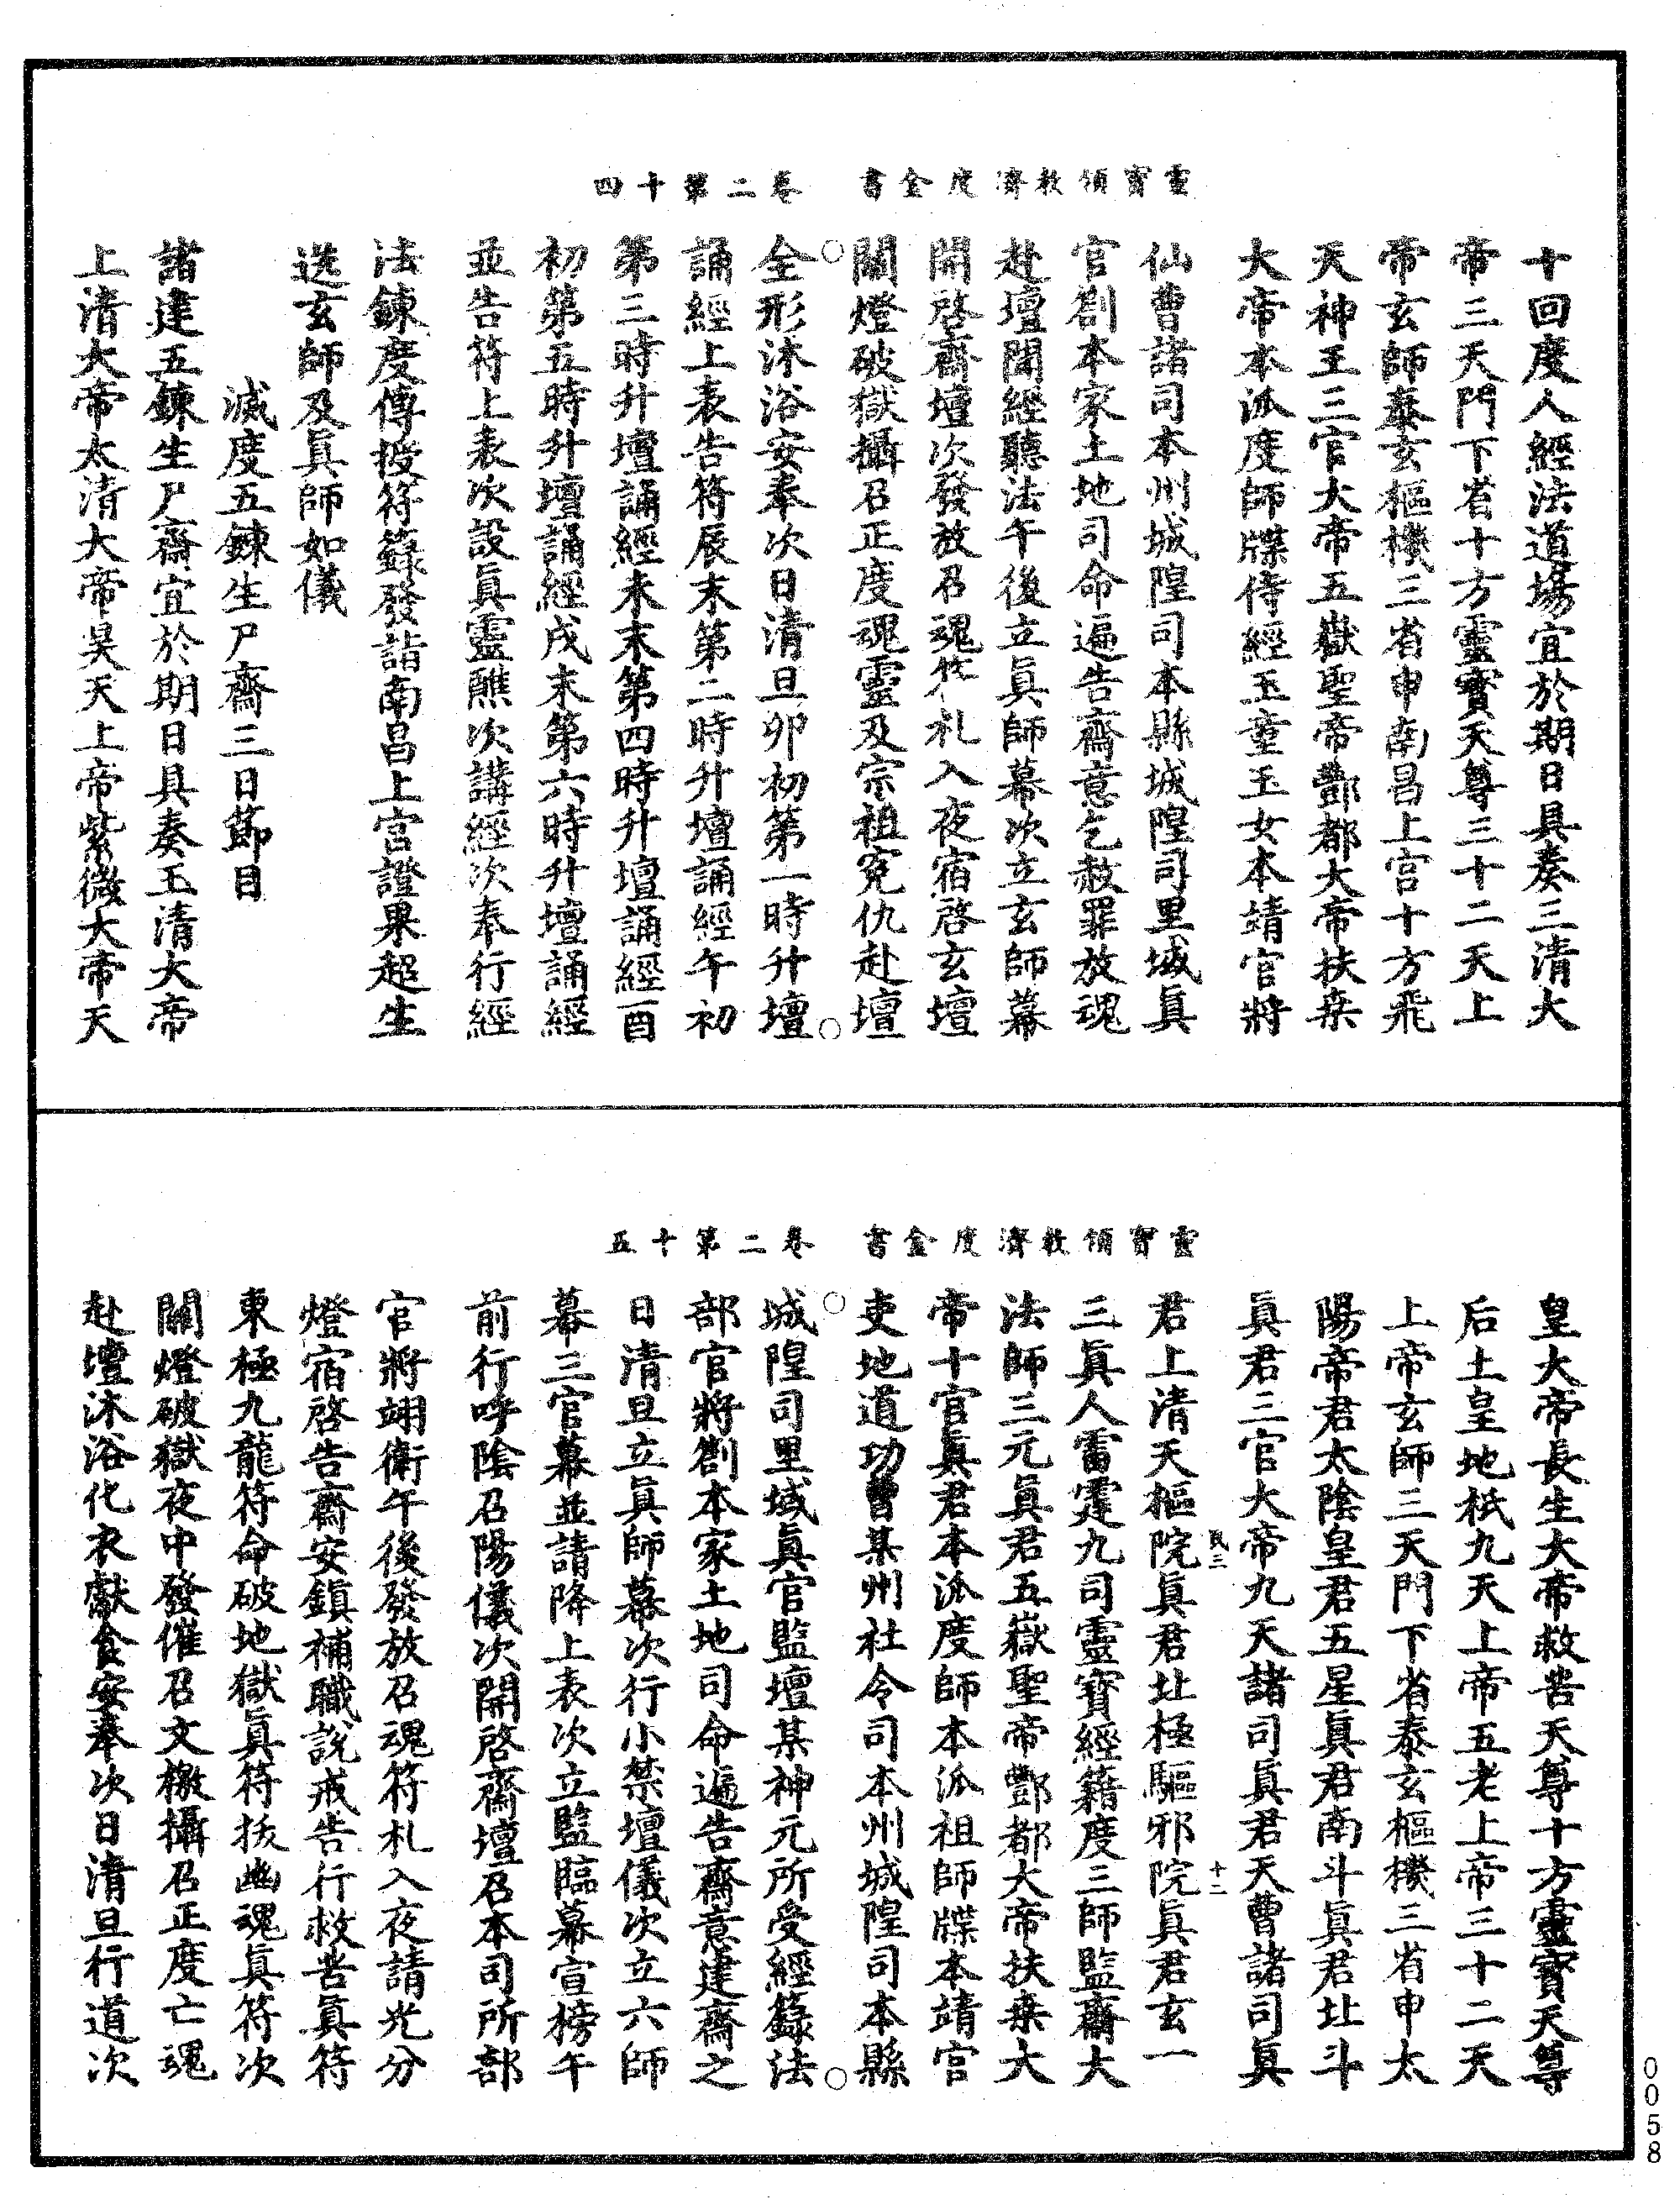 靈寶領教濟度金書　卷二第十四
十回度人經法道場宜於期日具奏三清大
帝三天門下省十方靈寶天尊三十二天上
帝玄師泰玄樞機三省申南昌上宮十方飛
天神王三官大帝五嶽聖帝酆都大帝扶桒
大帝本派度師牒侍經玉童玉女本靖官將
仙曹諸司本州城隍司本縣城隍司里域眞
官劄本家土地司命遍告齋意乞赦罪放魂
赴壇聞經聽法午後立眞師幕次立玄師幕
開啓齋壇次發放召魂符札入夜宿啓玄壇
關燈破獄攝召正度魂靈及宗祖寃仇赴壇
全形沐浴安奉次日清旦卯初第一時升壇
誦經上表告符辰末第二時升壇誦經午初
第三時升壇誦經未末第四時升壇誦經酉
初第五時升壇誦經戌末第六時升壇誦經
並告符上表次設眞靈醮次講經次奉行經
法鍊度傳授符籙發詣南昌上宮證果超生
送玄師及眞師如儀
滅度五鍊生尸齋三日節目
諸建五鍊生尸齋宜於期日具奏玉清大帝
上清大帝太清大帝昊天上帝紫微大帝天
靈寶領教濟度金書　卷二第十五
皇大帝長生大帝救苦天尊十方靈寶天尊
后土皇地祇九天上帝五老上帝三十二天
上帝玄師三天門下省泰玄樞機三省申太
陽帝君太陰皇君五星眞君南斗眞君北斗
眞君三官大帝九天諸司眞君天曹諸司眞
民三　十二
君上清天樞院眞君北極驅邪院眞君玄一
三眞人雷霆九司靈寶經籍度三師監齋大
法師三元眞君五嶽聖帝酆都大帝扶桒大
帝十官眞君本派度師本派祖師牒本靖官
吏地道功曹某州社令司本州城隍司本縣
城隍司里域眞官監壇某神元所受經籙法
部官將劄本家土地司命遍告齋意建齋之
日清旦立眞師幕次行小禁壇儀次立六師
幕三官幕並請降上表次立監臨幕宣榜午
前行呼陰召陽儀次開啓齋壇召本司所部
官將翊衛午後發放召魂符札入夜請光分
燈宿啓告齋安鎭補職說戒告行救苦眞符
東極九龍符命破地獄眞符拔幽魂眞符次
關燈破獄夜中發催召文檄攝召正度亡魂
赴壇沐浴化衣獻食安奉次日清旦行道次
0058